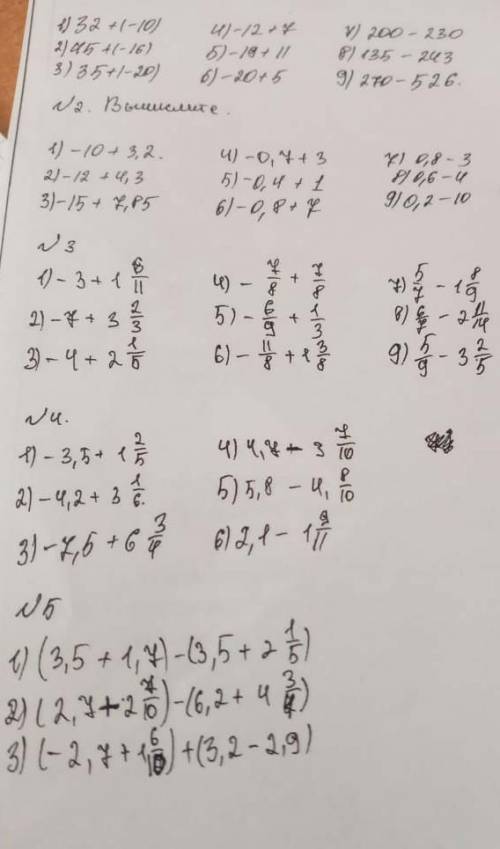 1) 32 + (-10) 4) -12 + 7 7) 200 - 230
2) 45 + (-16) 5) -19 + 11 8) 135 - 243
3) 35 + (-20) 6) -20 + 5 9) 270 - 526.
№2. Вычислите.
1) -10 + 3,2. 4) -0,7 + 3 7) 0,8 - 3
2) -12 + 4,3 5) -0,4 + 1 8) 0,6 - 4
3) -15 + 7,85 6) -0,8 + 7 9) 0,2 - 10
№3
1) -3 + 1 6/11 4) -7/8 + 7/8 7) 5/7 - 1 8/9
2) -7 + 3 2/3 5) -6/9 + 1/3 8) 6/7 - 2 11/14
3) -4 + 2 1/5 6) -11/8 + 1 3/8 9) 5/9 - 3 2/5
№4.
1) -3,5 + 1 2/5 4) 4,7 - 3 7/10
2) -4,2 + 3 1/6. 5) 5,8 - 4, 8/10
3) -7,5 + 6 3/4 6) 2,1 - 1 9/11
№5
1) (3,5 + 1,7) - (3,5 + 2 1/5)
2) (2,7 + 2 7/10) - (6,2 + 4 3/4)
3) (-2,7 + 1 6/10) + (3,2 - 2,9)